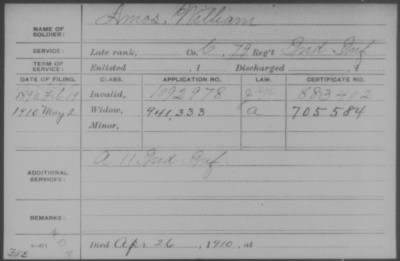 Amos, William
NAME OF SOLDIER:
SERVICE: Late rank, Co. C, 79 Reg't Ind Inf
TERM OF SERVICE: Enlisted , 1 Discharged , 1
DATE OF FILING. CLASS. APPLICATION NO. LAW. CERTIFICATE NO.
1892 Feb 19 Invalid, 1092978 882402
1910 May 2 Widow, 941,333 a 705584
Minor,
ADDITIONAL SERVICES: A 11 Ind Inf
REMARKS:
Died Apr 26, 1910, at